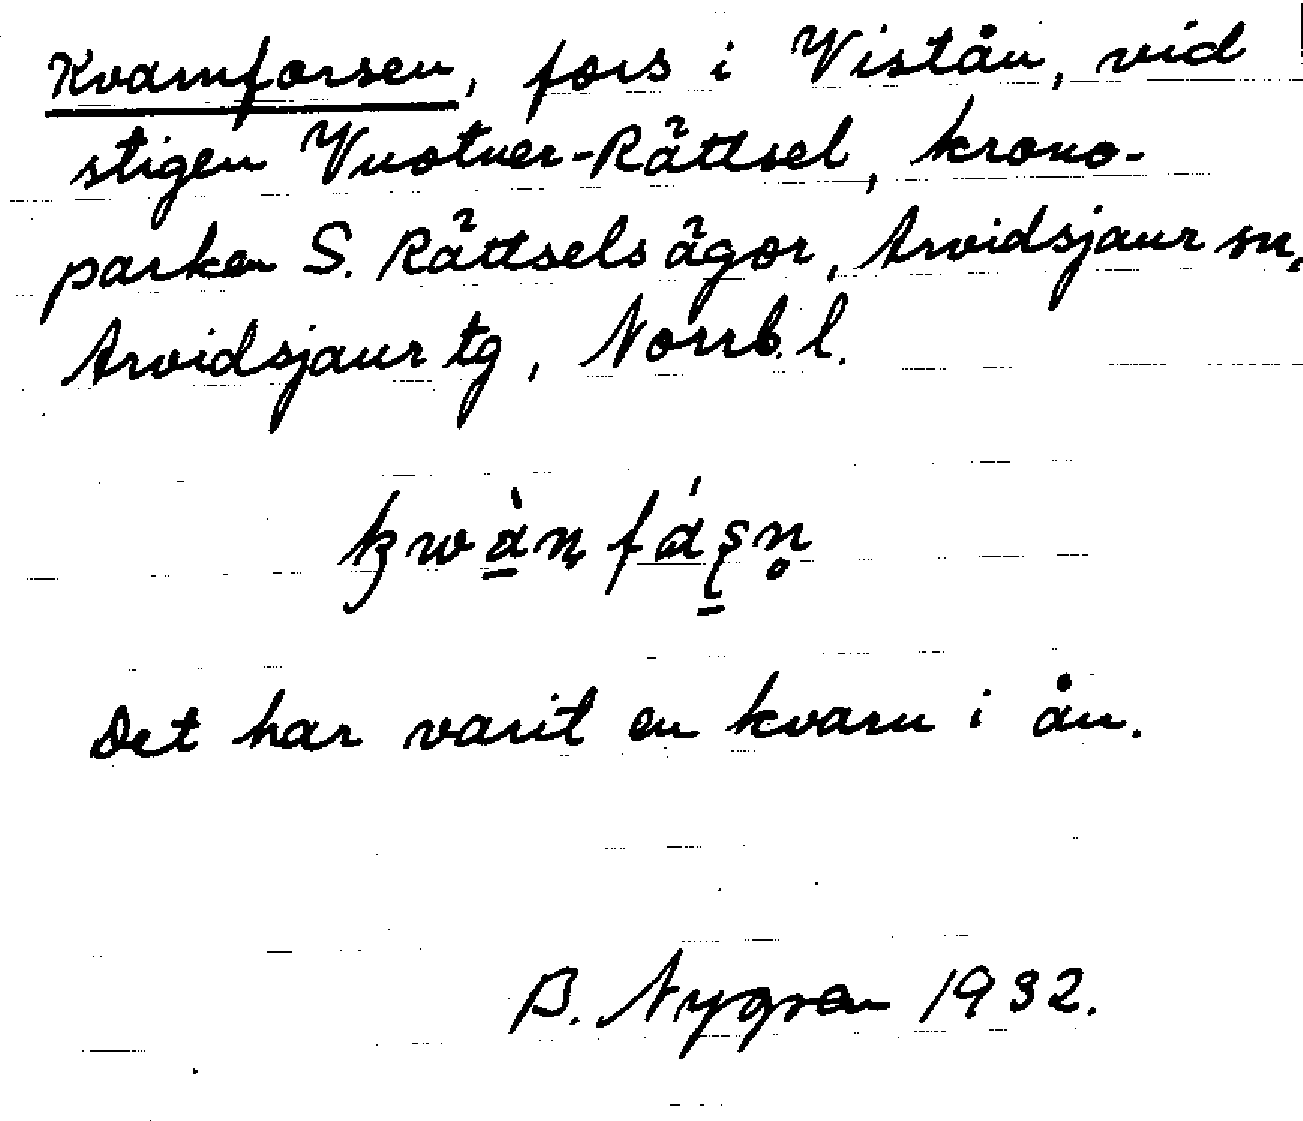 Kvarnforsen, fors i Vistån, vid
stigen Vuotner-Rättsel, krono-
parken S. Rättsels ägor, Arvidsjaur sn,
Arvidsjaur tg, Norrb. l.
Det har varit en kvarn i ån.
B. Nygren 1932.